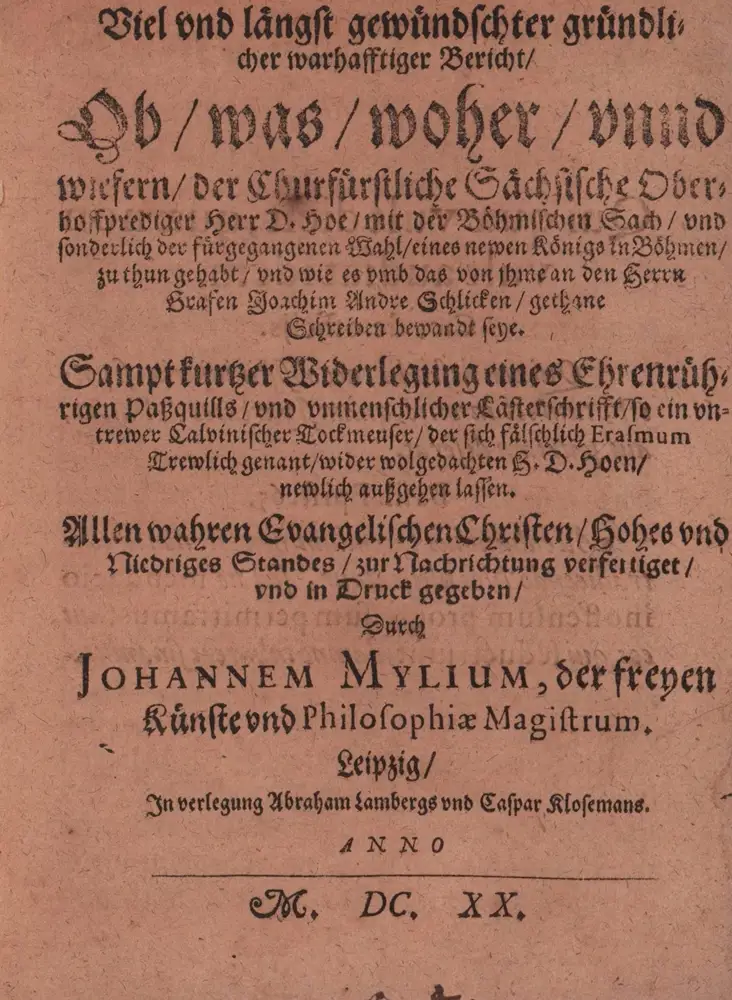 Viel vnd längst gewündschter gründli-
cher warhafftiger Bericht/
Ob / was / woher / vnnd
wiefern/ der Churfürstliche Sächsische Ober-
hoffprediger Herr D. Hoe / mit der Böhmischen Sach / vnd
sonderlich der fürgegangenen Wahl/eines newen Königs in Böhmen/
zu thun gehabt / vnd wie es vmb das von jhme an den Herrn
Grafen Joachim Andre Schlicken / gethane
Schreiben bewandt seye.
Sampt kurtzer Widerlegung eines Ehrenrüh-
rigen Paßquills / vnd vnmenschlicher Lästerschrifft/so ein vn-
trewer Calvinischer Tockmeuser/ der sich fälschlich Erasmum
Trewlich genant/wider wolgedachten H. D. Hoen/
newlich außgehen lassen.
Allen wahren Evangelischen Christen / Hohes vnd
Niedriges Standes / zur Nachrichtung verfertiget /
vnd in Druck gegeben/
Durch
JOHANNEM MYLIUM, der freyen
Künste vnd Philosophiæ Magistrum.
Leipzig/
In verlegung Abraham Lambergs vnd Caspar Klosemans.
ANNO
M. DC. XX.